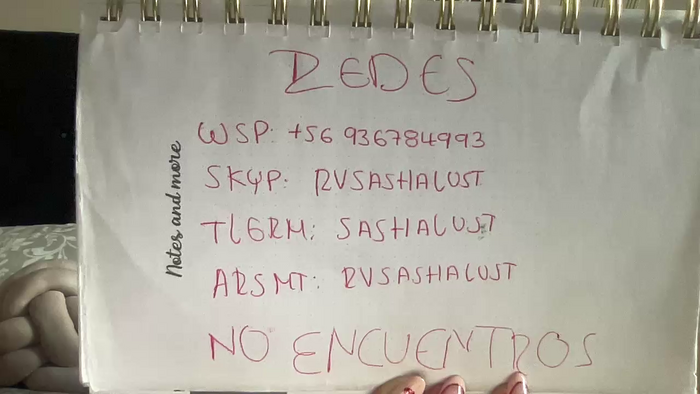 REDES
WSP: +56 936784993
SKYP: RVSASHALUST
TLGRM: SASHALUST
ARSMT: RVSASHALUST
NO ENCUENTROS
Notes and more